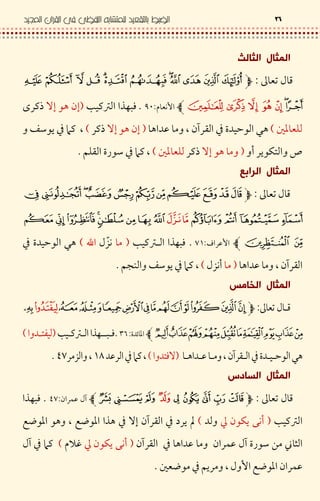 ٢٦
الضبط بالتقعيد للمتشابه اللفظي في القرآن المجيد
المثال الثالث
قال تعالى : ﴿ أُوْلَٰٓئِكَ ٱلَّذِينَ هَدَى ٱللَّهُۖ فَبِهُدَىٰهُمُ ٱقۡتَدِهۡۗ قُل لَّآ أَسۡـَٔلُكُمۡ عَلَيۡهِ
أَجۡرًاۖ إِنۡ هُوَ إِلَّا ذِكۡرَىٰ لِلۡعَٰلَمِينَ ﴾ الأنعام:٩٠ . فبهذا التركيب (إن هو إلا ذكرى
للعالمين ) هي الوحيدة في القرآن ، وما عداها (إن هو إلا ذكر ) ، كما في يوسف و
ص والتكوير أو ( وما هو إلا ذكر للعالمين ) ، كما في سورة القلم .
المثال الرابع
قال تعالى : ﴿ قَالَ قَدۡ وَقَعَ عَلَيۡكُم مِّن رَّبِّكُمۡ رِجۡسٞ وَغَضَبٌۖ أَتُجَٰدِلُونَنِي فِيٓ
أَسۡمَآءٖ سَمَّيۡتُمُوهَآ أَنتُمۡ وَءَابَآؤُكُم مَّا نَزَّلَ ٱللَّهُ بِهَا مِن سُلۡطَٰنٖۚ فَٱنتَظِرُوٓاْ إِنِّي مَعَكُم
مِّنَ ٱلۡمُنتَظِرِينَ ﴾ الأعراف:٧١ . فبهذا التركيب ( ما نزّل الله ) هي الوحيدة في
القرآن ، وما عداها ( ما أنزل ) ، كما في يوسف والنجم .
المثال الخامس
قال تعالى: ﴿ إِنَّ ٱلَّذِينَ كَفَرُواْ لَوۡ أَنَّ لَهُم مَّا فِي ٱلۡأَرۡضِ جَمِيعٗا وَمِثۡلَهُۥ مَعَهُۥ لِيَفۡتَدُواْ بِهِۦ
مِنۡ عَذَابِ يَوۡمِ ٱلۡقِيَٰمَةِ مَا تُقُبِّلَ مِنۡهُمۡۖ وَلَهُمۡ عَذَابٌ أَلِيمٞ ﴾ المائدة:٣٦ . فبهذا التركيب (ليفتدوا )
هي الوحيدة في القرآن ، وما عداها (لافتدوا ) ، كما في الرعد ١٨ ، والزمر٤٧ .
المثال السادس
قال تعالى : ﴿ قَالَتۡ رَبِّ أَنَّىٰ يَكُونُ لِي وَلَدٞ وَلَمۡ يَمۡسَسۡنِي بَشَرٞۖ ﴾ آل عمران:٤٧ . فبهذا
التركيب ( أنى يكون لي ولد ) لم يرد في القرآن إلا في هذا الموضع ، وهو الموضع
الثاني من سورة آل عمران وما عداها في القرآن ( أنى يكون لي غلام ) كما في آل
عمران الموضع الأول ، ومريم في موضعين .